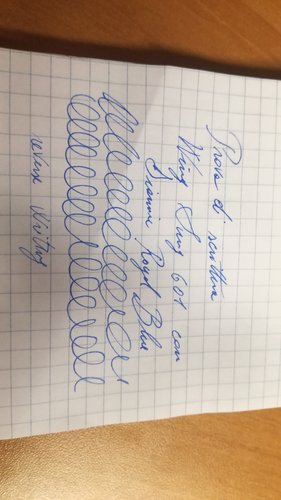 Prova di scrittura
Wing Sung 601 con
Diamine Royal Blue
reverse writing